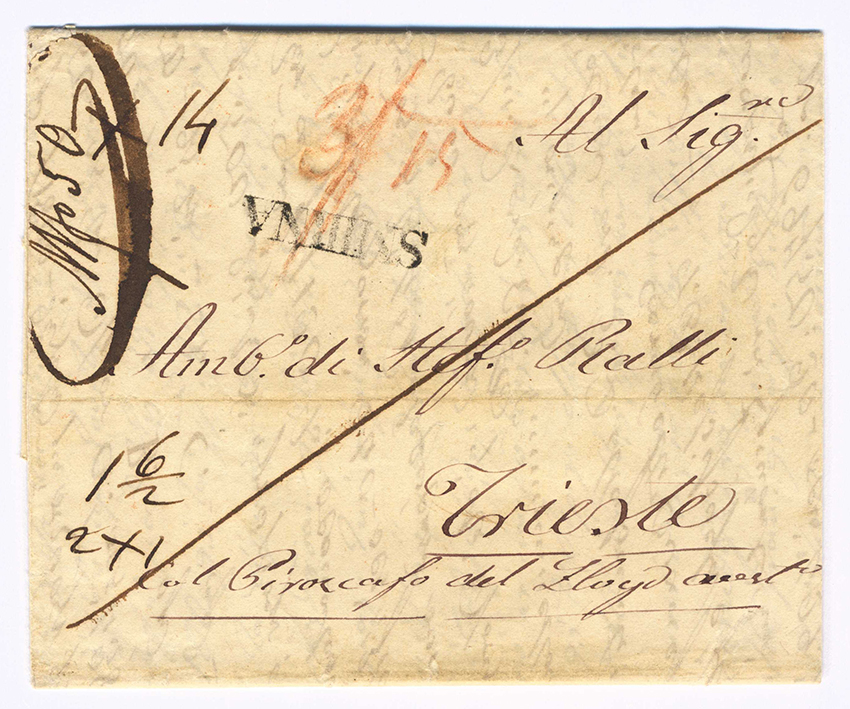 50
x 14
3/15
Al Sig.re
SMIRNA
Amb.o di Stef.o Ralli
1 6/2
2 x 1
Trieste
Col Piroscafo del Lloyd aust.o